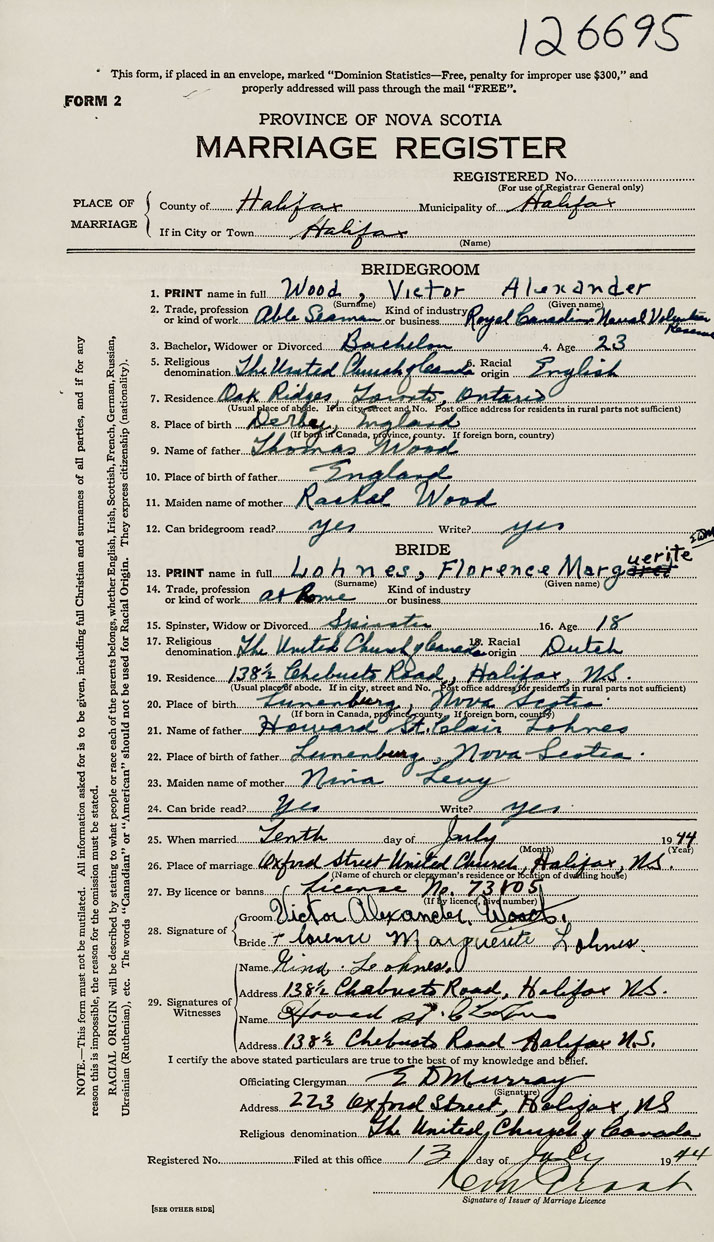 126695
This form, if placed in an envelope, marked "Dominion Statistics—Free, penalty for improper use $300," and
properly addressed will pass through the mail "FREE".
FORM 2
PROVINCE OF NOVA SCOTIA
MARRIAGE REGISTER
REGISTERED No.
(For use of Registrar General only)
PLACE OF MARRIAGE
County of Halifax Municipality of Halifax
If in City or Town Halifax
(Name)
BRIDEGROOM
1. PRINT name in full Wood, Victor Alexander
(Surname) (Given name)
2. Trade, profession or kind of work Able Seaman Kind of industry or business Royal Canadian Naval Volunteer Reserve
3. Bachelor, Widower or Divorced Bachelor 4. Age 23
5. Religious denomination The United Church of Canada 6. Racial origin English
7. Residence Oak Ridges, Toronto, Ontario
(Usual place of abode. If in city, street and No. Post office address for residents in rural parts not sufficient)
8. Place of birth Derby, England
(If born in Canada, province, county. If foreign born, country)
9. Name of father Thomas Wood
10. Place of birth of father England
11. Maiden name of mother Rachel Wood
12. Can bridegroom read? yes Write? yes
BRIDE
EDM
13. PRINT name in full Lohnes, Florence Marguerite
(Surname) (Given name)
14. Trade, profession or kind of work at home Kind of industry or business
15. Spinster, Widow or Divorced Spinster 16. Age 18
17. Religious denomination The United Church of Canada 18. Racial origin Dutch
19. Residence 138½ Chebucto Road, Halifax, N.S.
(Usual place of abode. If in city, street and No. Post office address for residents in rural parts not sufficient)
20. Place of birth Lunenburg, Nova Scotia
(If born in Canada, province, county. If foreign born, country)
21. Name of father Howard St. Clair Lohnes
22. Place of birth of father Lunenburg, Nova Scotia.
23. Maiden name of mother Nina Levy
24. Can bride read? Yes Write? yes
25. When married Tenth day of July 1944
(Month) (Year)
26. Place of marriage Oxford Street United Church, Halifax, N.S.
(Name of church or clergyman's residence or location of dwelling house)
27. By licence or banns License No. 73805
(If by licence, give number)
28. Signature of
Groom Victor Alexander Wood.
Bride Florence Marguerite Lohnes.
29. Signatures of Witnesses
Name Lohnes.
Address 138½ Chebucto Road, Halifax N.S.
Name Howard St. C
Address 138½ Chebucto Road Halifax N.S.
I certify the above stated particulars are true to the best of my knowledge and belief.
Officiating Clergyman E D Murray
(Signature)
Address 223 Oxford Street, Halifax, NS
Religious denomination The United Church of Canada
Registered No. Filed at this office 13 day of July 1944
Signature of Issuer of Marriage Licence
[SEE OTHER SIDE]
NOTE.—This form must not be mutilated. All information asked for is to be given, including full Christian and surnames of all parties, and if for any
reason this is impossible, the reason for the omission must be stated.
RACIAL ORIGIN will be described by stating to what people or race each of the parents belongs, whether English, Irish, Scottish, French, German, Russian,
Ukrainian (Ruthenian), etc. The words "Canadian" or "American" should not be used for Racial Origin. They express citizenship (nationality).